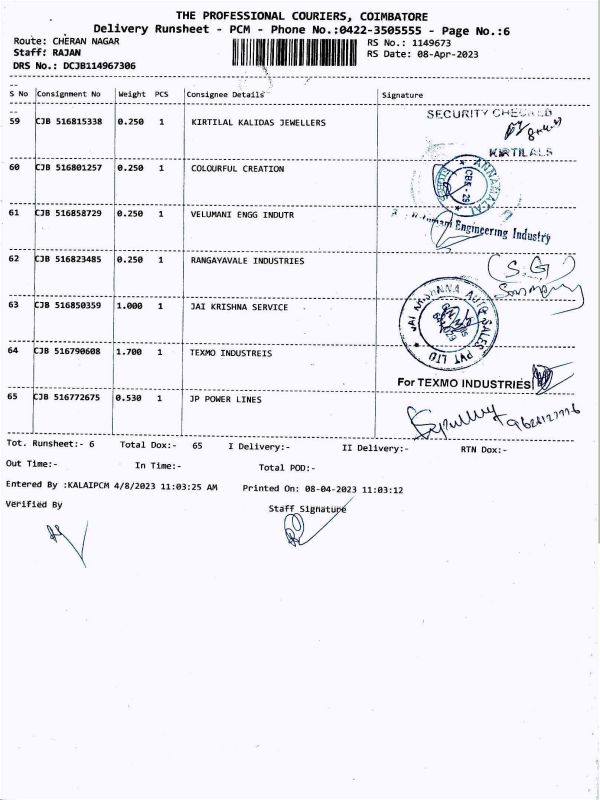 THE PROFESSIONAL COURIERS, COIMBATORE
Delivery Runsheet - PCM - Phone No.:0422-3505555 - Page No.:6
Route: CHERAN NAGAR RS No.: 1149673
Staff: RAJAN RS Date: 08-Apr-2023
DRS No.: DCJB114967306
S No Consignment No Weight PCS Consignee Details Signature
59 CJB 516815338 0.250 1 KIRTILAL KALIDAS JEWELLERS
SECURITY CHECKED
KIRTILALS
60 CJB 516801257 0.250 1 COLOURFUL CREATION
61 CJB 516858729 0.250 1 VELUMANI ENGG INDUTR
Engineering Industry
62 CJB 516823485 0.250 1 RANGAYAVALE INDUSTRIES
(S.G)
63 CJB 516850359 1.000 1 JAI KRISHNA SERVICE
JAI KRISHNA AUTO SALES PVT LTD
64 CJB 516790608 1.700 1 TEXMO INDUSTREIS
For TEXMO INDUSTRIES
65 CJB 516772675 0.530 1 JP POWER LINES
Tot. Runsheet:- 6 Total Dox:- 65 I Delivery:- II Delivery:- RTN Dox:-
Out Time:- In Time:- Total POD:-
Entered By :KALAIPCM 4/8/2023 11:03:25 AM Printed On: 08-04-2023 11:03:12
Verified By Staff Signature